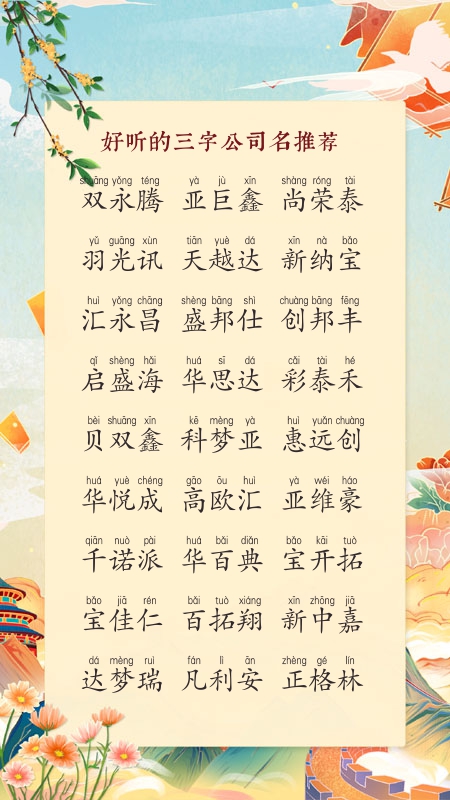 好听的三字公司名推荐
shuāng yǒng téng yà jù xīn shàng róng tài
双永腾 亚巨鑫 尚荣泰
yǔ guāng xùn tiān yuè dá xīn nà bǎo
羽光讯 天越达 新纳宝
huì yǒng chāng shèng bāng shì chuàng bāng fēng
汇永昌 盛邦仕 创邦丰
qǐ shèng hǎi huá sī dá cǎi tài hé
启盛海 华思达 彩泰禾
bèi shuāng xīn kē mèng yà huì yuǎn chuàng
贝双鑫 科梦亚 惠远创
huá yuè chéng gāo ōu huì yà wéi háo
华悦成 高欧汇 亚维豪
qiān nuò pài huá bǎi diǎn bǎo kāi tuò
千诺派 华百典 宝开拓
bǎo jiā rén bǎi tuò xiáng xīn zhōng jiā
宝佳仁 百拓翔 新中嘉
dá mèng ruì fán lì ān zhèng gé lín
达梦瑞 凡利安 正格林